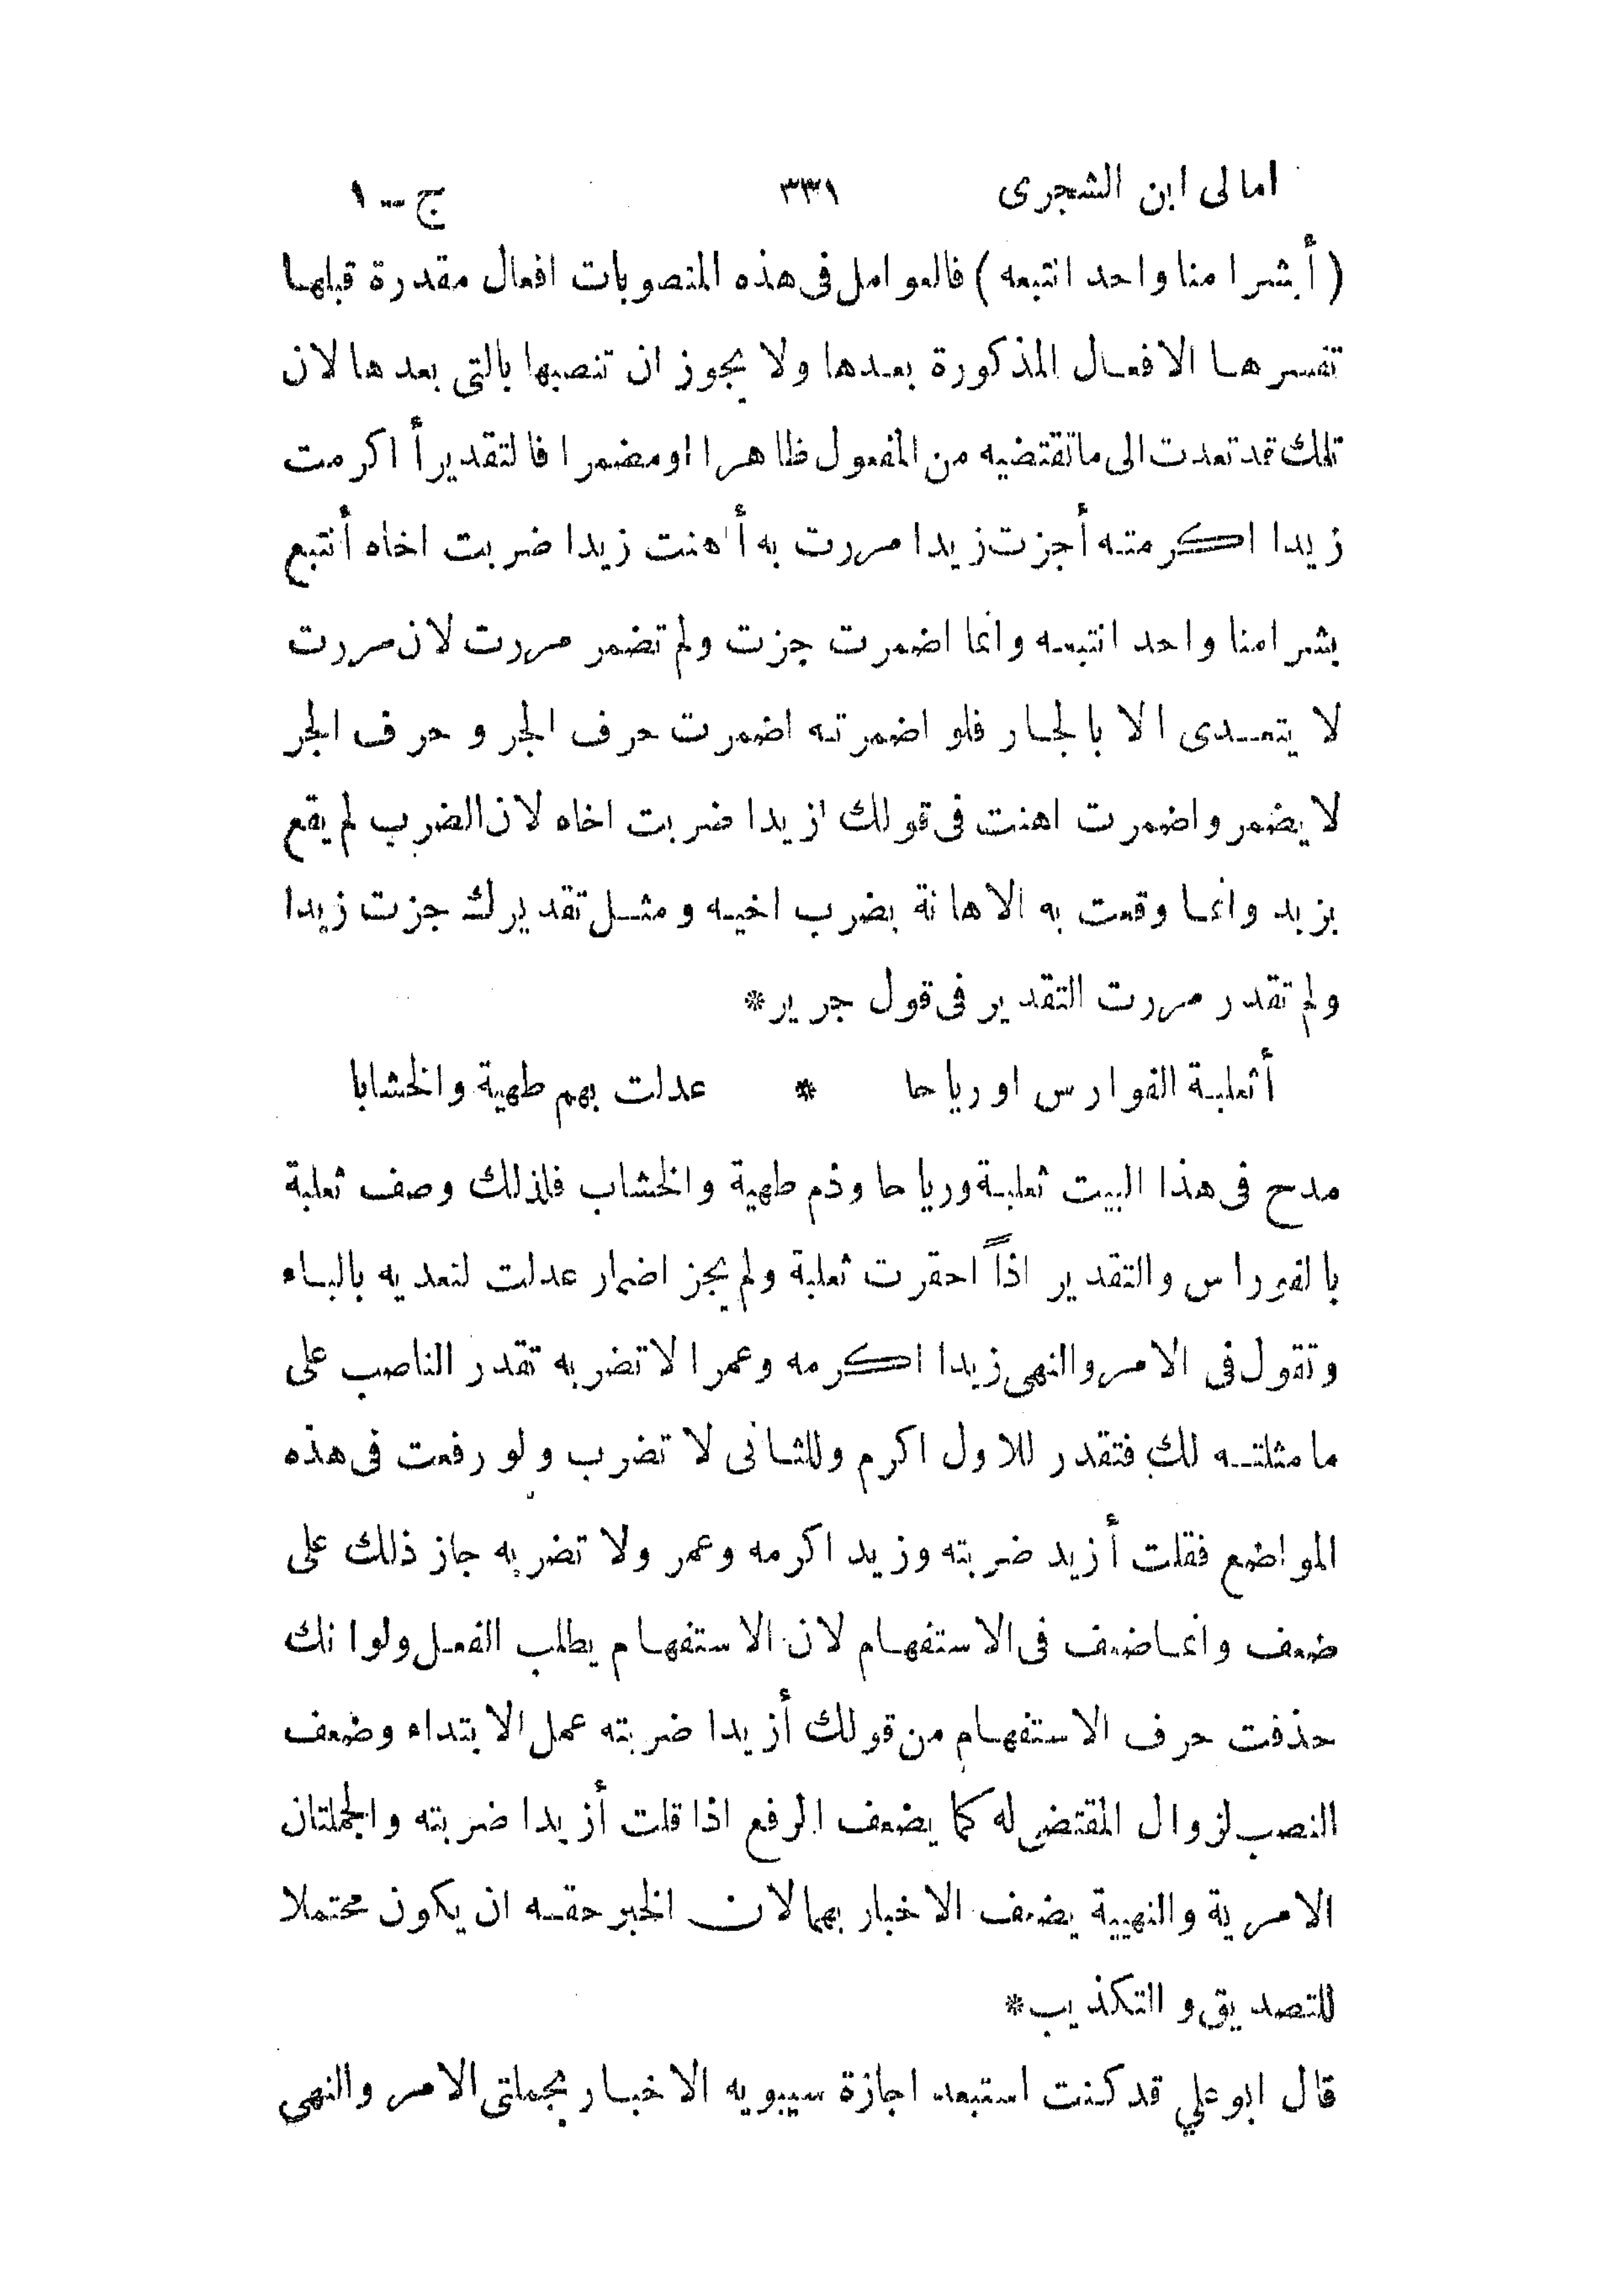 امالى ابن الشجرى ٣٣١ ج – ١
( أبشرا منا واحد انتبعه ) فالعوامل فى هذه المنصوبات افعال مقدرة قبلها
تفسرها الافعال المذكورة بعدها ولا يجوز ان تنصبها بالتى بعدها لان
تلك قد تعدت الى ما تقتضيه من المفعول ظاهرا او مضمرا فالتقدير أ اكرمت
زيدا اكرمته أجزت زيدا مررت به أ اهنت زيدا ضربت اخاه أنتبع
بشرا منا واحد انتبعه وانما اضمرت جزت ولم تضمر مررت لان مررت
لا يتعدى الا بالجار فلو اضمرته اضمرت حرف الجر وحرف الجر
لا يضمر واضمرت اهنت فى قولك ازيدا ضربت اخاه لان الضرب لم يقع
بزيد وانما وقعت به الاهانة بضرب اخيه ومثل تقديرك جزت زيدا
ولم تقدر مررت التقدير فى قول جرير *
أثعلبة الفوارس او رياحا * عدلت بهم طهية والخشابا
مدح فى هذا البيت ثعلبة ورياحا وذم طهية والخشاب فلذلك وصف ثعلبة
بالفوراس والتقدير اذاً احقرت ثعلبة ولم يجز اضمار عدلت لتعديه بالباء
وتقول فى الامر والنهى زيدا اكرمه وعمرا لا تضربه تقدر الناصب على
ما مثلته لك فتقدر للاول اكرم وللثانى لا تضرب ولو رفعت فى هذه
المواضع فقلت أزيد ضربته وزيد اكرمه وعمر ولا تضربه جاز ذلك على
ضعف وانما ضعف فى الاستفهام لان الاستفهام يطلب الفعل ولو انك
حذفت حرف الاستفهام من قولك أزيدا ضربته عمل الابتداء وضعف
النصب لزوال المقتضى له كما يضعف الرفع اذا قلت أزيدا ضربته والجملتان
الامرية والنهيية يضعف الاخبار بهما لان الخبر حقه ان يكون محتملا
للتصديق والتكذيب *
قال ابو علي قد كنت استبعد اجازة سيبويه الاخبار بجملتى الامر والنهى